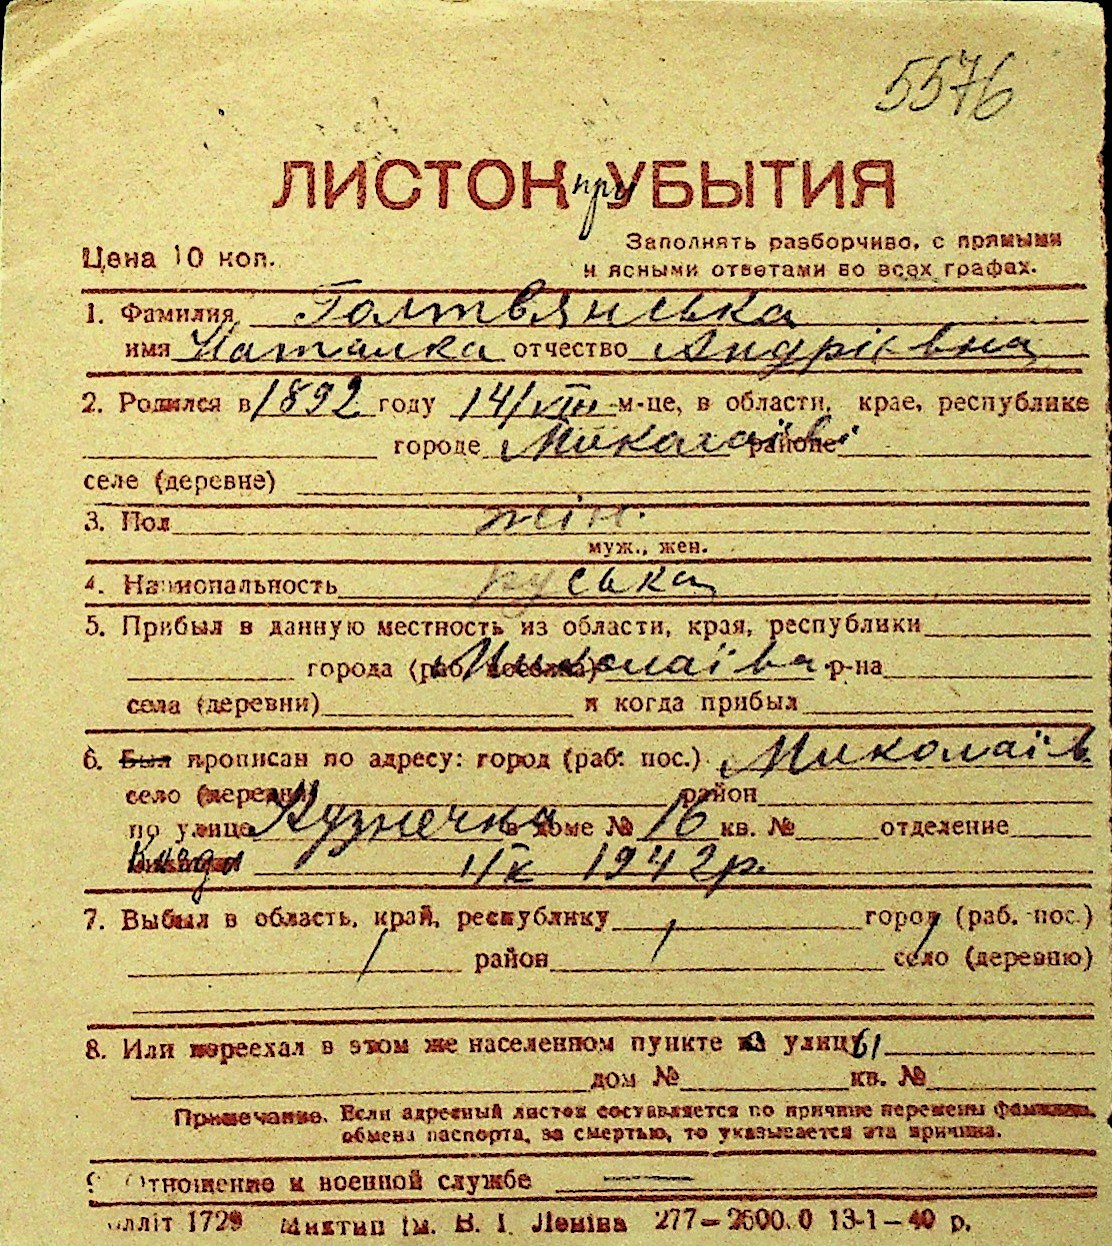 5576
ЛИСТОК при УБЫТИЯ
Цена 10 коп.
Заполнять разборчиво, с прямыми
и ясными ответами во всех графах.
1. Фамилия Голтвянська
имя Наталка отчество Андріівна
2. Родился в 1892 году 14/VIII м-це, в области, крае, республике
городе Миколаїві районе
селе (деревне)
3. Пол жін.
муж., жен.
4. Национальность руська
5. Прибыл в данную местность из области, края, республики
города (раб. поселка) Миколаїва р-на
села (деревни) и когда прибыл
6. Был прописан по адресу: город (раб. пос.) Миколаїв
село (деревня) район
по улице Кузнечна в доме № 16 кв. № отделение
Когда 1/IX 1942 р.
7. Выбыл в область, край, республику город (раб. пос.)
район село (деревню)
8. Или переехал в этом же населенном пункте на улицу
дом № кв. №
Примечание. Если адресный листок составляется по причине перемены фамилии,
обмена паспорта, за смертью, то указывается эта причина.
9 Отношение к военной службе
лліт 1729 Миктип ім. В. І. Леніна 277—2600.0 13-1—40 р.